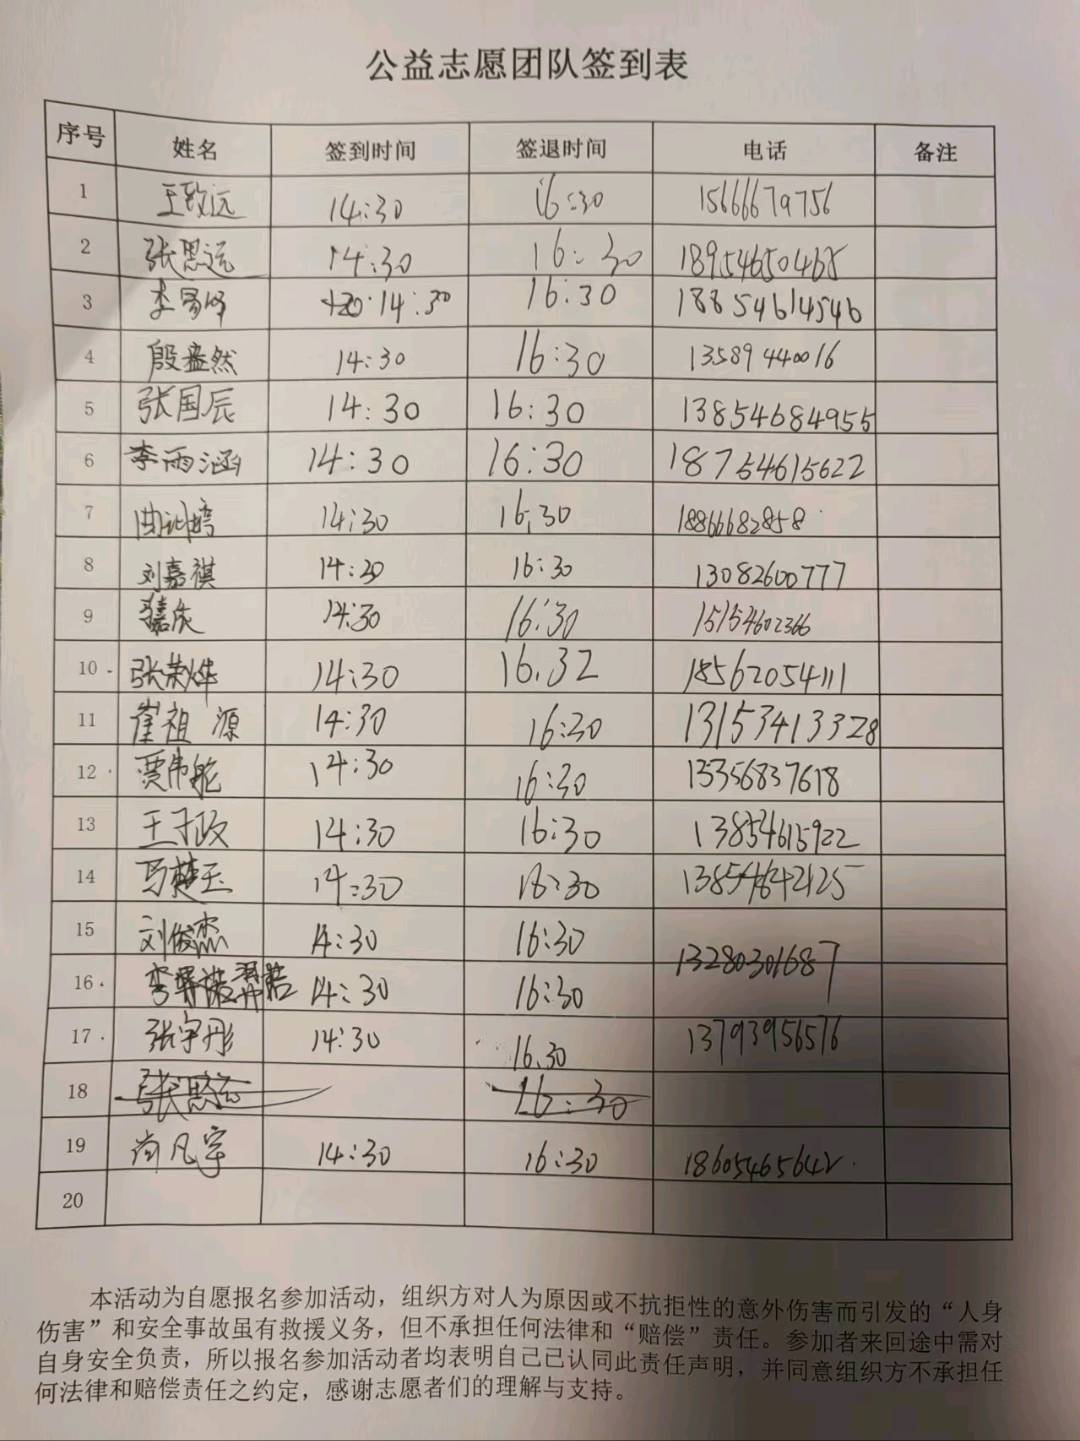 公益志愿团队签到表
序号 姓名 签到时间 签退时间 电话 备注
1 王致远 14:30 16:30 15666679756
2 张思远 14:30 16:30 18954650468
3 14:30 16:30 18854614546
4 殷盎然 14:30 16:30 13589440016
5 张国辰 14:30 16:30 13854684955
6 李雨涵 14:30 16:30 18754615622
7 14:30 16:30 18866682858
8 刘嘉祺 14:20 16:30 13082600777
9 14:30 16:30 15154602366
10 张荣烨 14:30 16.32 18562054111
11 崔祖源 14:30 16:30 13153413328
12 贾伟舵 14:30 16:30 13356837618
13 王子政 14:30 16:30 13854615922
14 马楚玉 14:30 16:30 13854642125
15 刘俊杰 14:30 16:30
16 14:30 16:30 13280301687
17 张宇彤 14:30 16.30 13793956576
18 张思远 16:30
19 尚凡宇 14:30 16:30 18605465642
20
本活动为自愿报名参加活动，组织方对人为原因或不抗拒性的意外伤害而引发的“人身
伤害”和安全事故虽有救援义务，但不承担任何法律和“赔偿”责任。参加者来回途中需对
自身安全负责，所以报名参加活动者均表明自己已认同此责任声明，并同意组织方不承担任
何法律和赔偿责任之约定，感谢志愿者们的理解与支持。